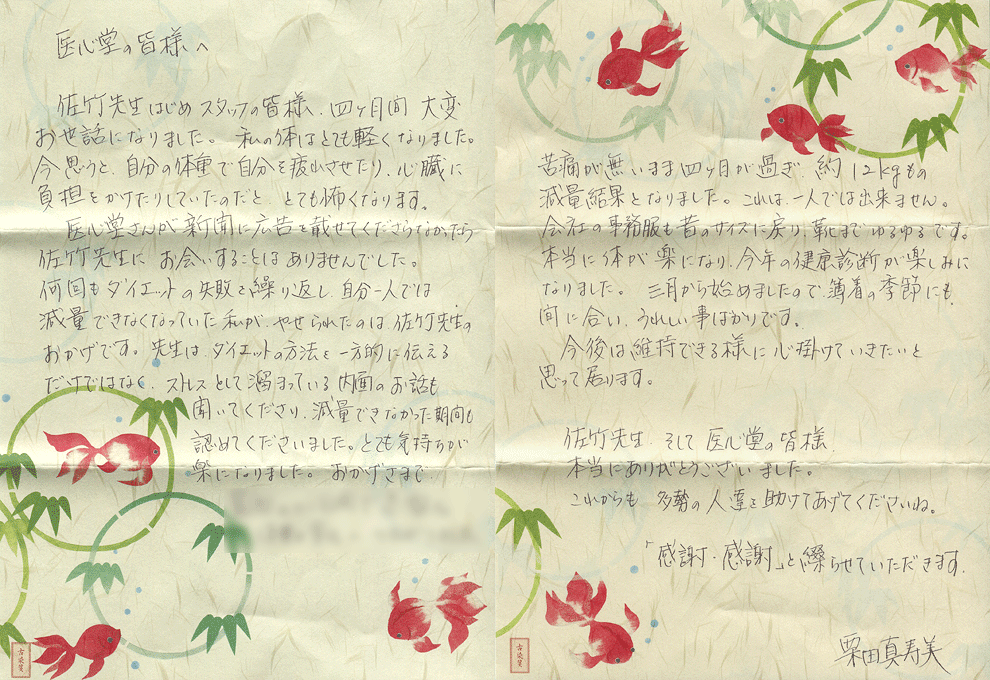 医心堂の皆様へ
佐竹先生はじめスタッフの皆様、四ヶ月間 大変
お世話になりました。 私の体はとても軽くなりました。
今思うと、自分の体重で自分を疲れさせたり、心臓に
負担をかけたりしていたのだと、とても怖くなります。
医心堂さんが新聞に広告を載せてくださらなかったら
佐竹先生に お会いすることは ありませんでした。
何回もダイエットの失敗を繰り返し、自分一人では
減量できなくなっていた私が、やせられたのは、佐竹先生の
おかげです。先生は、ダイエットの方法を一方的に伝える
だけではなく、ストレスとして溜まっている内面のお話も
聞いてくださり、減量できなかった期間も
認めてくださいました。とても気持ちが
楽になりました。 おかげさまで、
古染箋
苦痛が無いまま四ヶ月が過ぎ、約12kgもの
減量結果となりました。これは、一人では出来ません。
会社の事務服も昔のサイズに戻り、靴まで ゆるゆるです。
本当に体が楽になり、今年の健康診断が楽しみに
なりました。 三月から始めましたので、薄着の季節にも、
間に合い、うれしい事ばかりです。
今後は維持できる様に心掛けていきたいと
思って居ります。
佐竹先生、そして医心堂の皆様、
本当にありがとうございました。
これからも 多勢の人達を助けてあげてくださいね。
「感謝・感謝」と綴らせていただきます。
栗田真寿美
古染箋